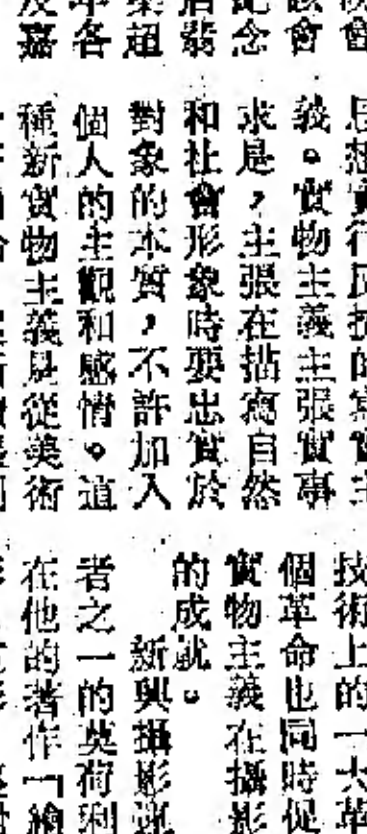 會
會
念
翡
超
各
嘉
思想實行反抗的寫實主
義。實物主義主張實事
求是，主張在描寫自然
和社會形象時要忠實於
對象的本質，不許加入
個人的主觀和感情。這
種新實物主義是從美術
技術上的一大革
個革命也同時促
實物主義在攝影
的成就。
新興攝影運
者之一的莫荷利
在他的著作「繪